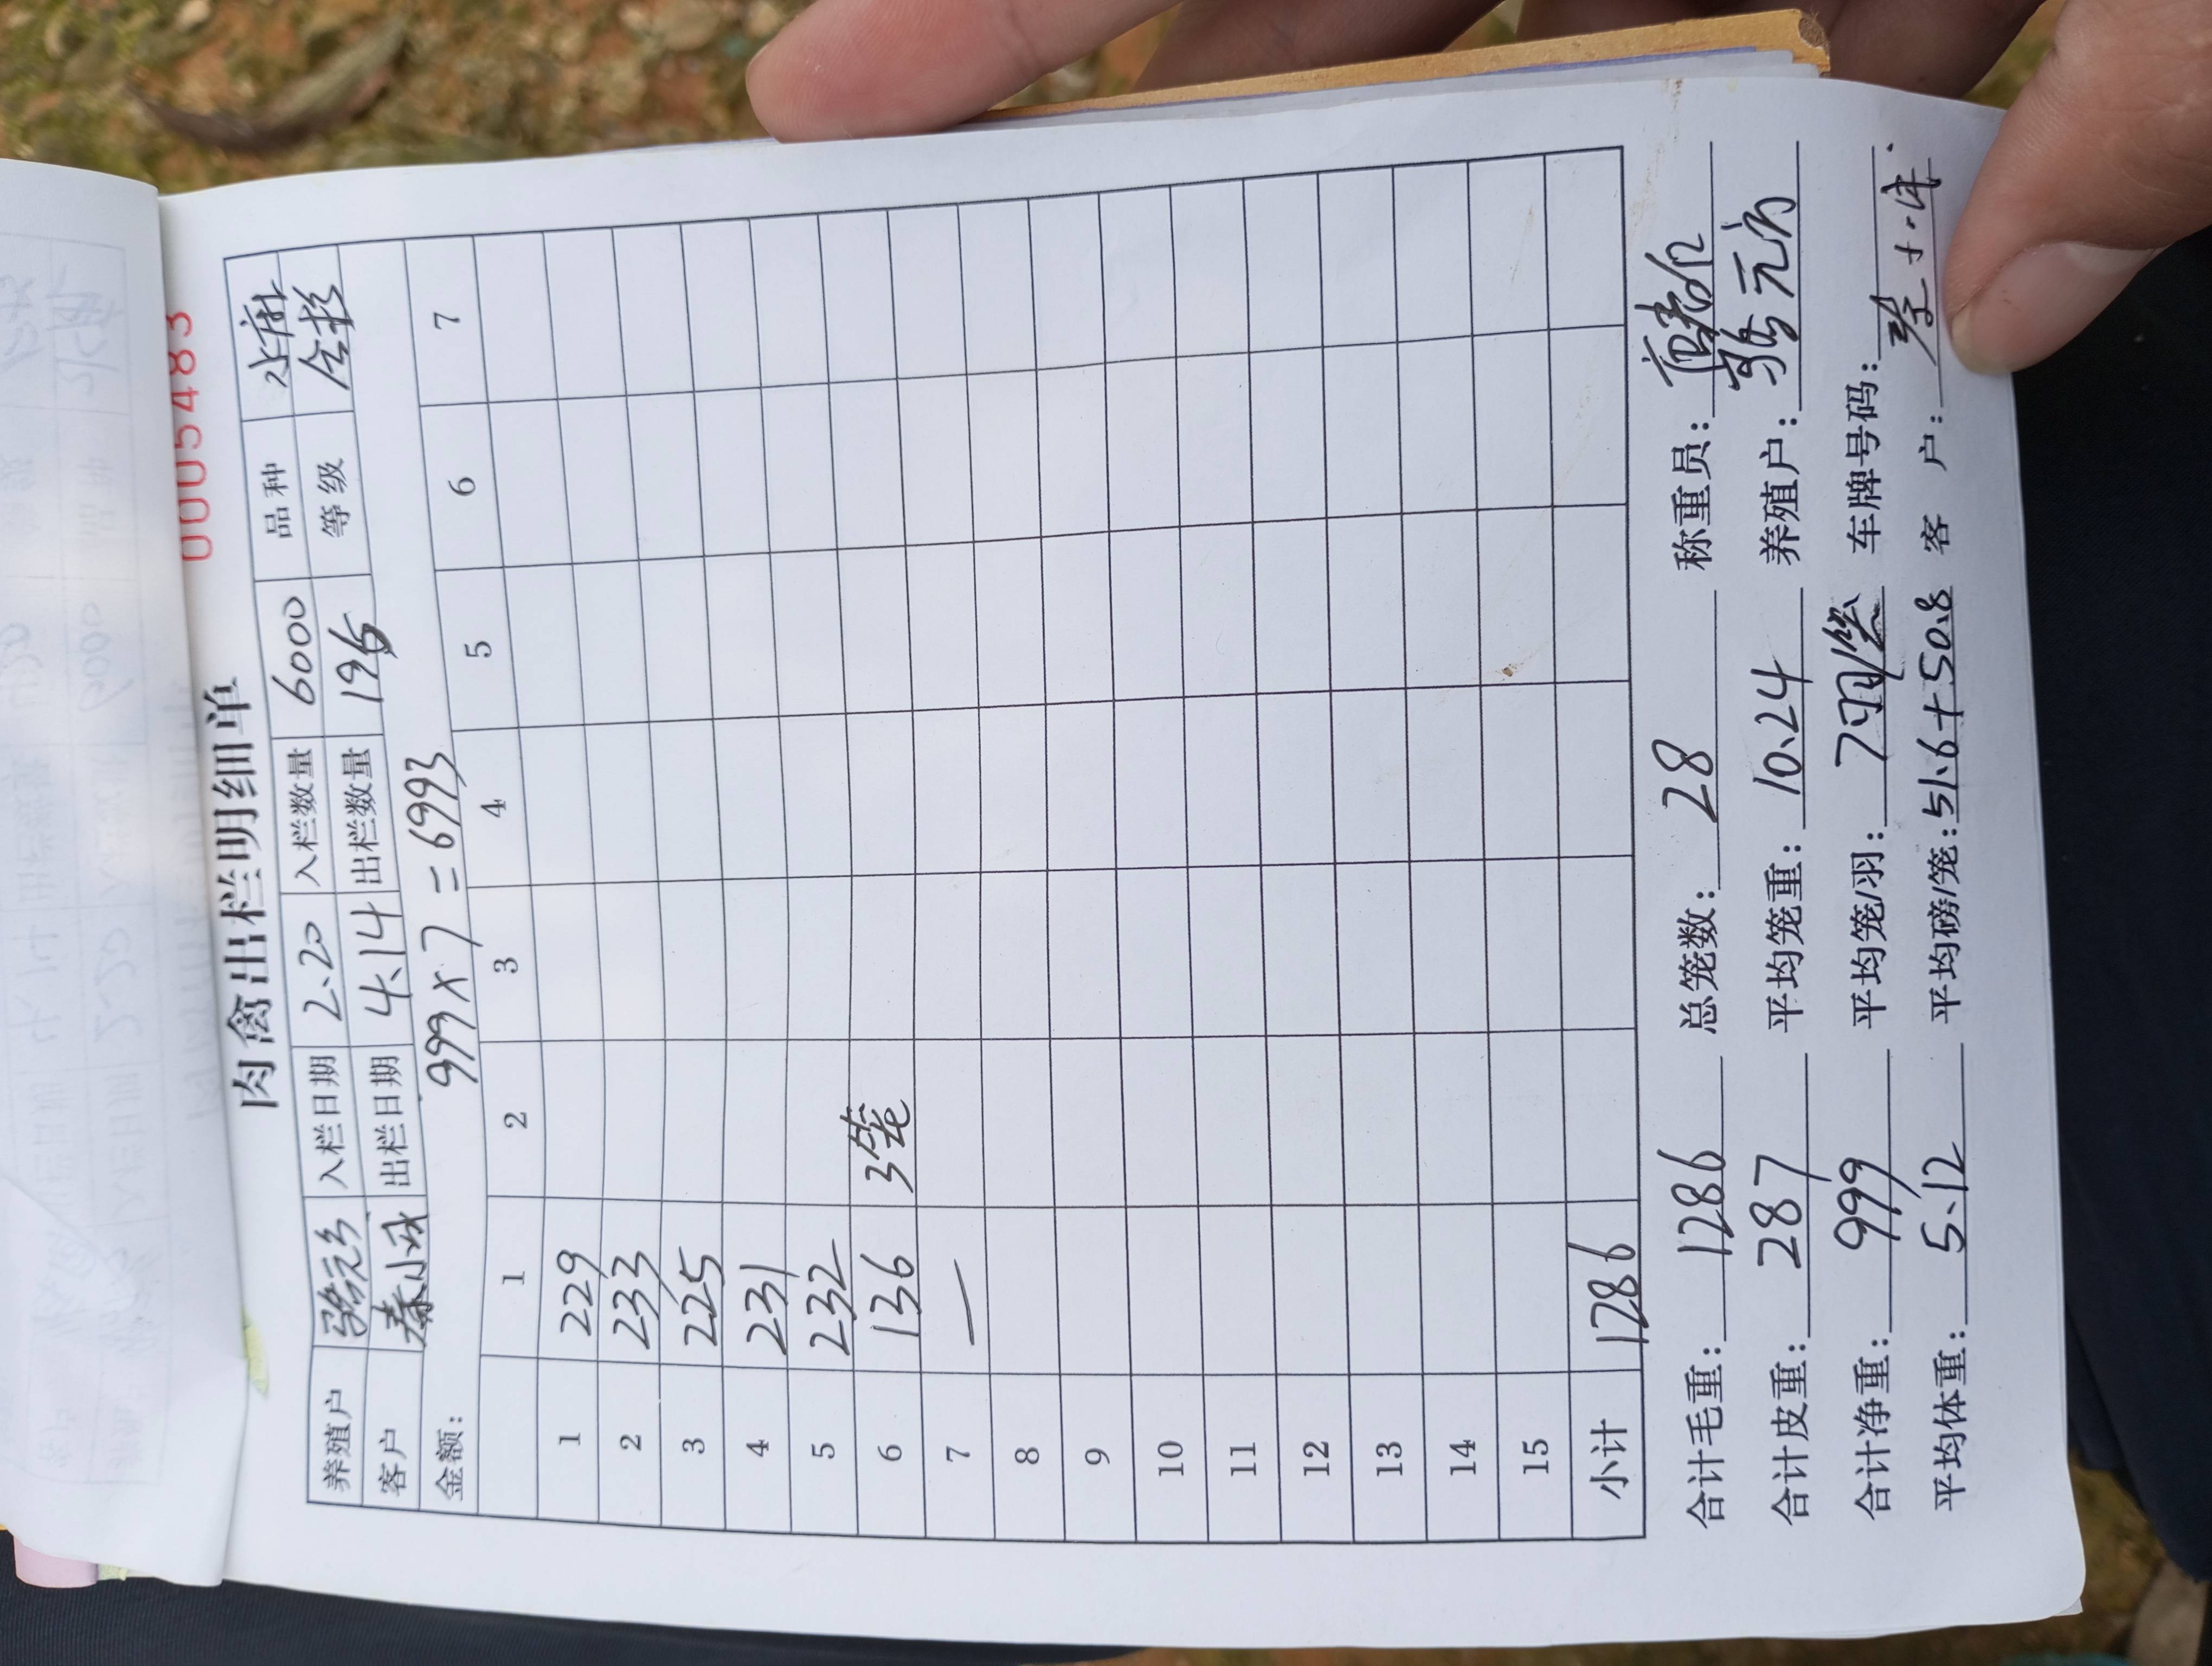 0005483
肉禽出栏明细单
养殖户 骆元乡 入栏日期 2.20 入栏数量 6000 品种 水麻
客户 秦小成 出栏日期 4.14 出栏数量 196 等级
金额: 999×7=6993
1 2 3 4 5 6 7
1 229
2 233
3 225
4 231
5 232
6 136 3笼
7 —
8
9
10
11
12
13
14
15
小计 1286
合计毛重: 1286 总笼数: 28 称重员:
合计皮重: 287 平均笼重: 10.24 养殖户:
合计净重: 999 平均笼/羽: 7羽/笼 车牌号码:
平均体重: 5.12 平均磅/笼: 51.6+50.8 客户: